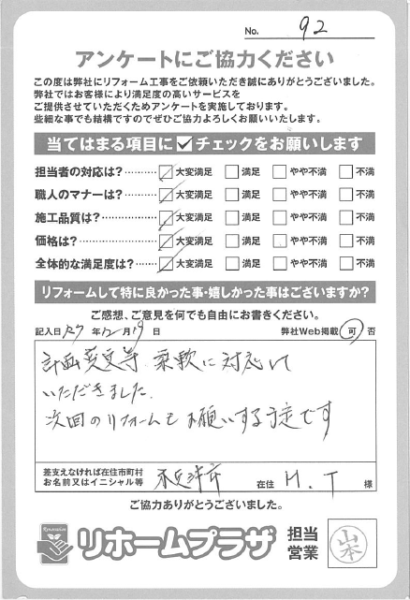 No. 92
アンケートにご協力ください
この度は弊社にリフォーム工事をご依頼いただき誠にありがとうございました。
弊社ではお客様により満足度の高いサービスを
ご提供させていただくためアンケートを実施しております。
些細な事でも結構ですのでぜひご協力よろしくお願いいたします。
当てはまる項目に✓チェックをお願いします
担当者の対応は?……… ☑大変満足 □満足 □やや不満 □不満
職人のマナーは?……… ☑大変満足 □満足 □やや不満 □不満
施工品質は?………… ☑大変満足 □満足 □やや不満 □不満
価格は?……………… ☑大変満足 □満足 □やや不満 □不満
全体的な満足度は?…… ☑大変満足 □満足 □やや不満 □不満
リフォームして特に良かった事・嬉しかった事はございますか?
ご感想、ご意見を何でも自由にお書きください。
記入日 R7年12月19日 弊社Web掲載 可 否
計画変更等 柔軟に対応して
いただきました。
次回のリフォームもお願いする予定です
差支えなければ在住市町村
お名前又はイニシャル等 在住 H.T 様
ご協力ありがとうございました。
リホームプラザ
担当
営業
山本